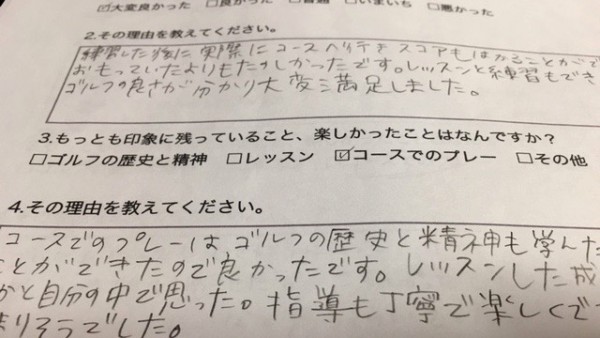 ☑大変良かった □良かった □普通 □いまいち □悪かった
2.その理由を教えてください。
練習した後に実際にコースへ行きスコアもはかることがで
おもっていたよりもたのしかったです。レッスンと練習もでき
ゴルフの良さが分かり大変満足しました。
3.もっとも印象に残っていること、楽しかったことはなんですか?
□ゴルフの歴史と精神 □レッスン ☑コースでのプレー □その他
4.その理由を教えてください。
コースでのプレーは、ゴルフの歴史と精神も学んだ
ことができたので良かったです。レッスンした成
かと自分の中で思った。指導も丁寧で楽しくで
まりそうでした。